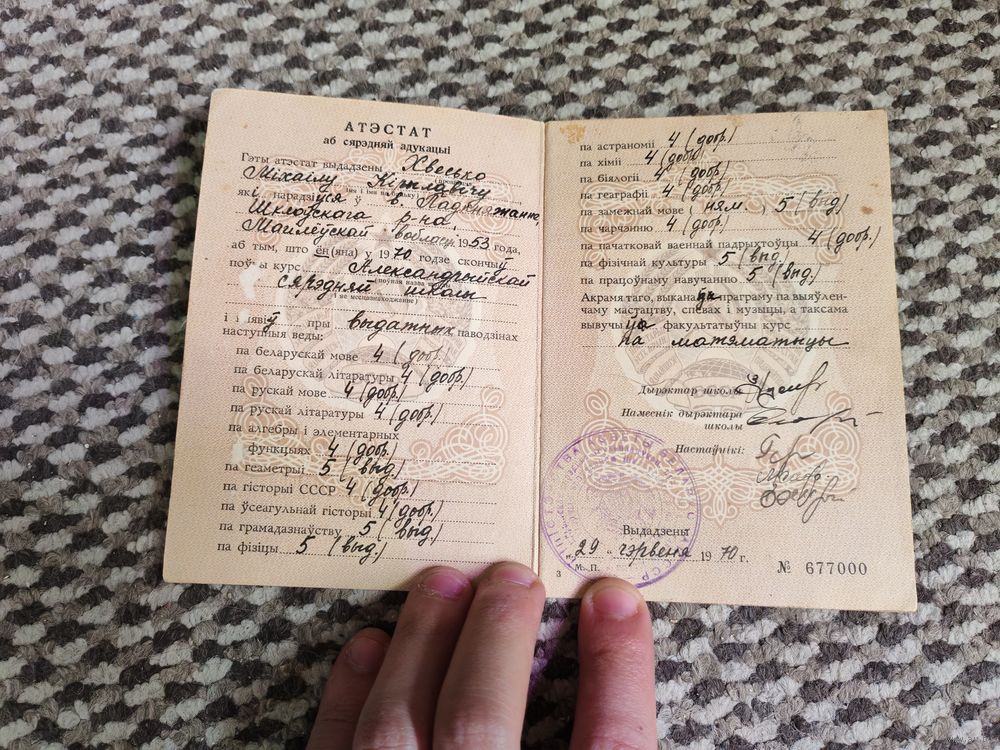 АТЭСТАТ
аб сярэдняй адукацыі
Гэты атэстат выдадзены Хвесько
Міхаілу Кірылавічу
які нарадзіўся ў в.
Шклоўскага р-на,
Магілеўскай вобласці 1953 года,
аб тым, што ён (яна) у 1970 годзе скончыў
поўны курс Александрыйскай
сярэдняй школы
і выявіў пры выдатных паводзінах
наступныя веды:
па беларускай мове 4 (добр.)
па беларускай літаратуры 4 (добр.)
па рускай мове 4 (добр.)
па рускай літаратуры 4 (добр.)
па алгебры і элементарных
функцыях 4 (добр.)
па геаметрыі 5 (выд.)
па гісторыі СССР 4 (добр.)
па ўсеагульнай гісторыі 4 (добр.)
па грамадазнаўству 5 (выд.)
па фізіцы 5 (выд.)
па астраноміі 4 (добр.)
па хіміі 4 (добр.)
па біялогіі 4 (добр.)
па геаграфіі 4 (добр.)
па замежнай мове (ням.) 5 (выд.)
па чарчэнню 4 (добр.)
па пачатковай ваеннай падрыхтоўцы 4 (добр.)
па фізічнай культуры 5 (выд.)
па працоўнаму навучанню 5 (выд.)
Акрамя таго, выканаў праграму па выяўлен-
чаму мастацтву, спевах і музыцы, а таксама
вывучыў факультатыўны курс
па матэматыцы
Дырэктар школы
Намеснік дырэктара
школы
Настаўнікі:
Выдадзены
„29“ чэрвеня 1970 г.
М. П.
3
№ 677000